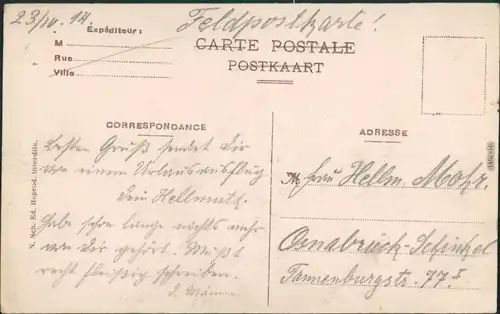 23/IV. 14.
Feldpostkarte!
Expéditeur:
M
Rue
Ville
CARTE POSTALE
POSTKAART
CORRESPONDANCE
ADRESSE
Besten Gruß sendet Dir
von einem Urlaubsausflug
Dein Hellmuth.
Habe schon lange nichts mehr
von Dir gehört. Mußt
recht fleißig schreiben.
Frau Hellm. Mohr.
Osnabrück-Schinkel
Tannenburgstr. 77.I
N. Sch. Ed. Reprod. interdite.